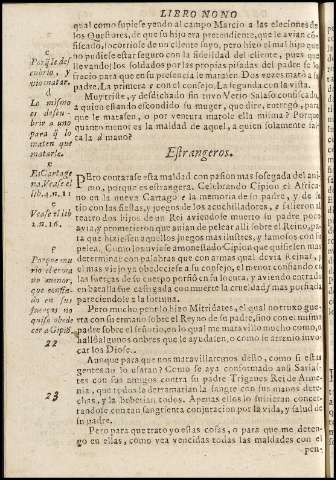 LIBRO NONO
qual como supiese yendo al campo Marcio a las eleciones de
los Questores, de que su hijo era pretendiente, que le avian cõ-
fiscado, socorriose de un cliente suyo, pero hizo el mal hijo que
no pudiese estar seguro con la fidelidad del cliente, pues que
llevando los soldados por las propias pisadas del padre se le
fracio para que en su presencia le matasen. Dos vezes mató a su
padre. La primera con el consejo. La segunda con la vista.
Muy triste, y desdichado fin tuvo Vetio Salaso confiscado,
a quien estando escondido su muger, que dire, entregò, para
que le matasen, o por ventura matole ella misma? Porque
quanto menos es la maldad de aquel, a quien solamente fal-
ca la mano?
c
Porq̃ le des
cubrio, y
quiso matar.
d
Lo mismo
es descu-
brir a uno
para q̃ lo
maten que
matarle.
Estrangeros.
PEro contarase esta maldad con pasion mas sosegada del ani-
mo, porque es estrangera. Celebrando Cipion el Africa-
no en la nueva Cartago la memoria de su padre, y de su
tio con las fiestas, y juegos de los acuchilladores, salieron al
teatro dos hijos de un Rei aviendole muerto su padre poco
avia, y prometieron que avian de pelear allí sobre el Reino, pa-
ra que hiziesen aquellos juegos mas ilustres, y famosos con su
pelea. Como los uviese amonestado Cipion que quisiesen mas
determinar con palabras que con armas qual devia Reinar, y
el mas viejo ya obedeciese a su consejo, el menor confiando en
las fuerças de su cuerpo porfiò en su locura, y aviendo entrado
en batalla fue castigada con muerte la crueldad
pareciendole a la fortuna.
e
Es Cartage
na. Vease el
lib. 4. n. 11
e
Vease el lib
1. n. 16.
f
Porque mu
rio el era
un menor,
que confia-
do en sus
fuerças no
quiso obede
cer a Cipiõ.
Pero mucho peor lo hizo Mitridates, el qual no truxo gue-
rra con su ermano sobre el Reyno de padre, sino con el mismo
padre sobre el señorio, en lo qual me maravillo mucho como, o
hallò algunos onbres que le ayudasen, o como se atrevio invo-
car los Dioses.
22
Aunque para que nos maravillaremos desto, como si estas
gentes no lo usaran? Como se aya conformado ansi Sarias-
tes con sus amigos contra su padre Tigranes Rei de Arme-
nia, que todos la derramarian la sangre con sus manos dere-
chas, y la beberian todos. Apenas ellos lo sufrieran concer-
tandole con tan sangrienta conjuracion por la vida, y salud de
su padre.
23
Pero para que trato yo estas cosas, o para que me deten-
go en ellas, como vea vencidas todas las maldades con el
pen-